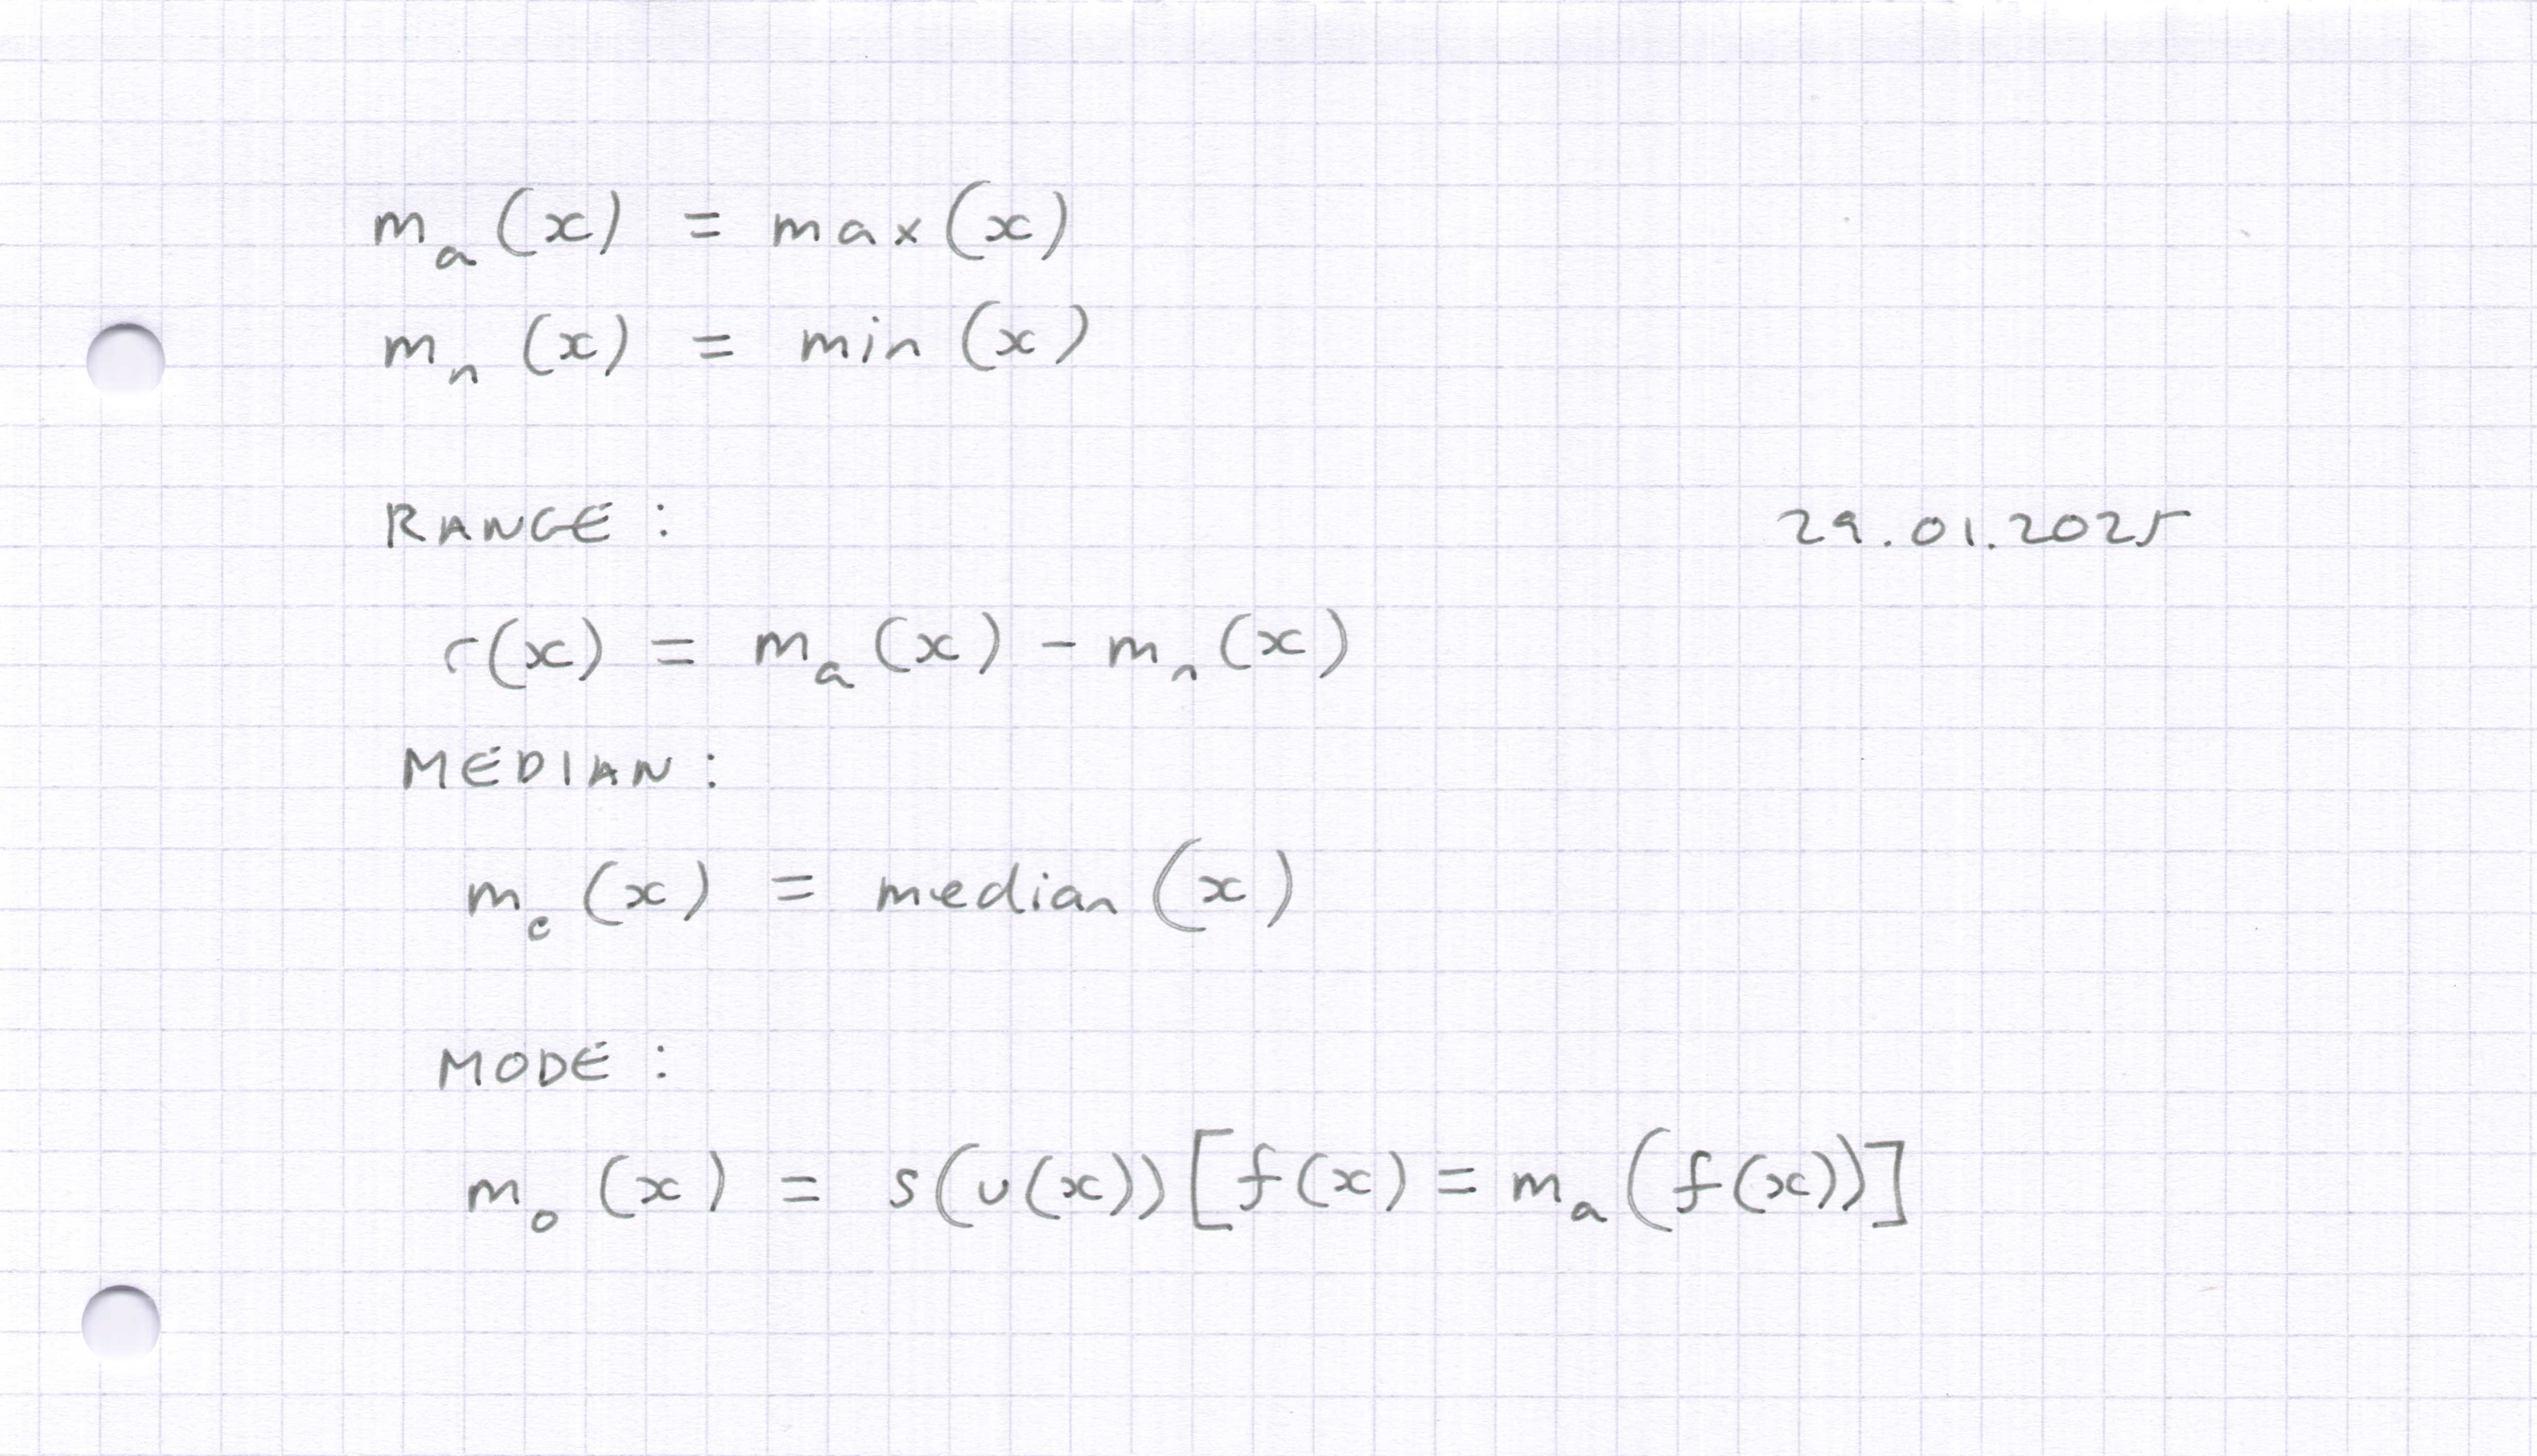 mₐ(x) = max(x)
mₙ(x) = min(x)
RANGE: 29.01.2025
r(x) = mₐ(x) - mₙ(x)
MEDIAN:
mₑ(x) = median(x)
MODE:
mₒ(x) = s(u(x))[f(x) = mₐ(f(x))]